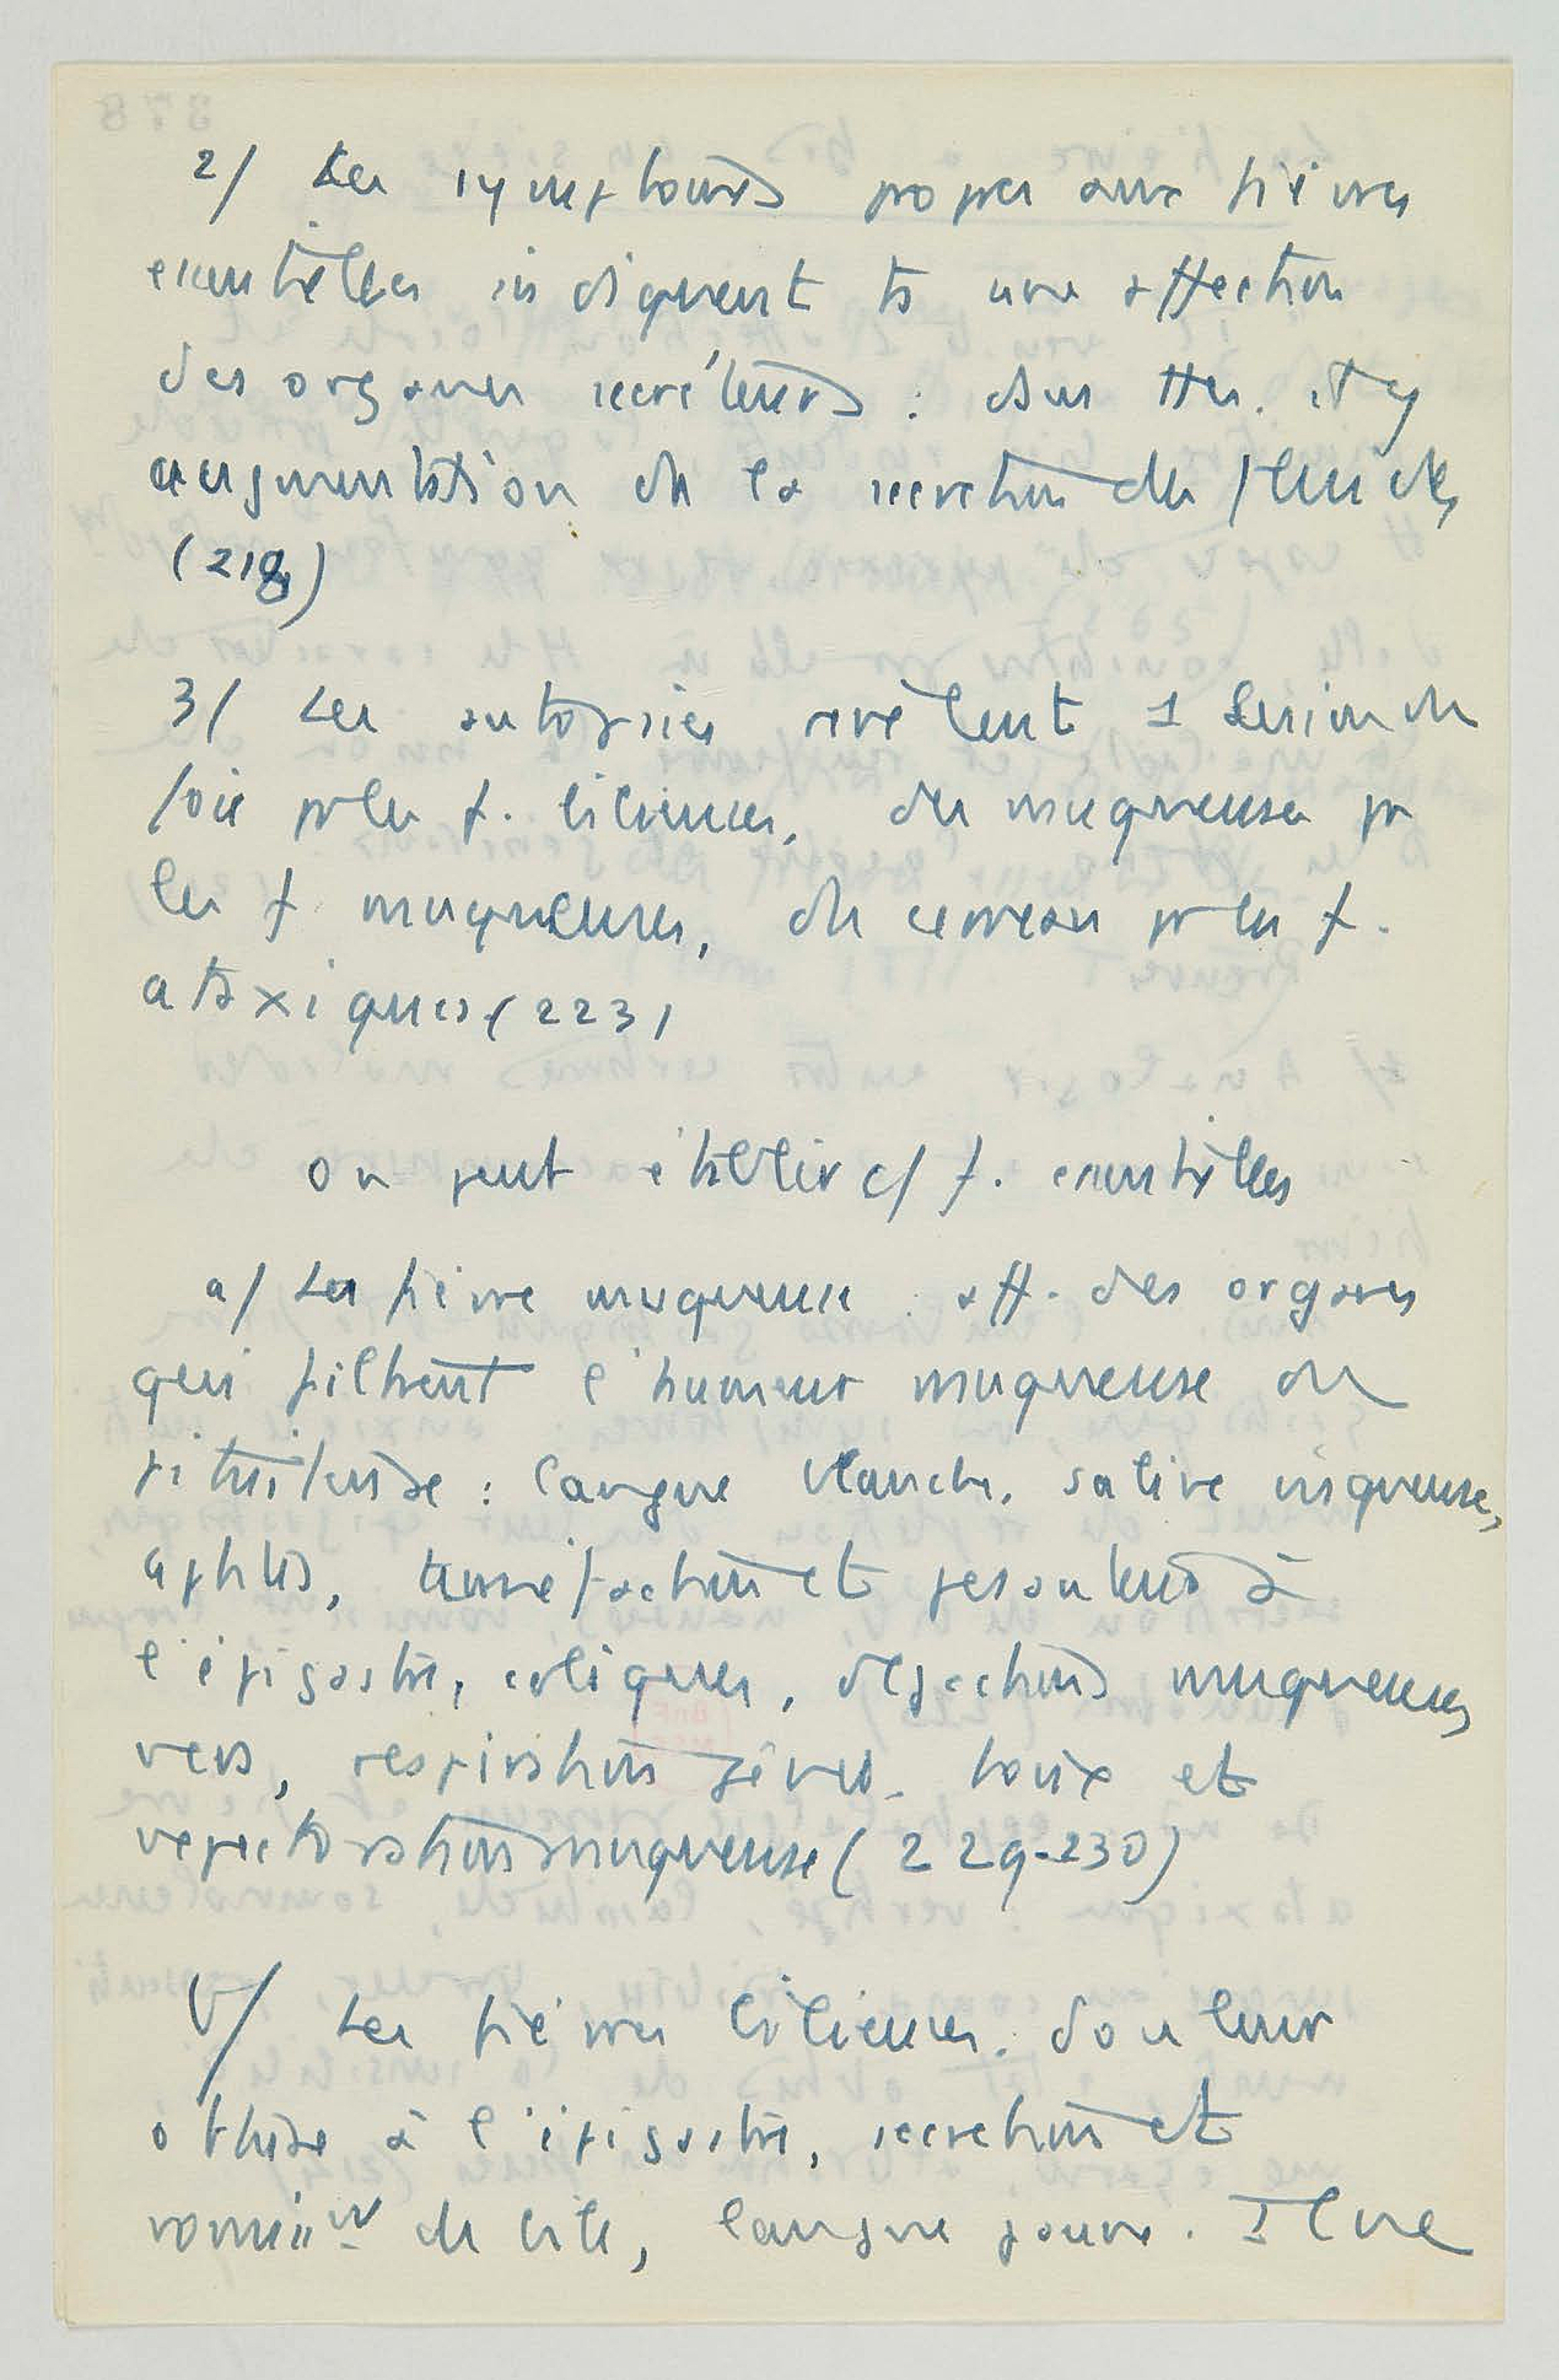 2/ Les symptomes propres aux fièvres
essentielles indiquent ts une affection
des organes secréteurs : ds ttes. il y
augmentation de la secretion des fluides
(218)
3/ Les autopsies revèlent 1 lesion du
foie pr les f. bilieuses, des muqueuses pr
les f. muqueuses, du cerveau pr les f.
ataxiques (223)
On peut établir c/ f. essentielles
a/ La fièvre muqueuse : aff. des organes
qui filtrent l'humeur muqueuse ou
pituiteuse : langue blanche, salive visqueuse,
aphtes, tuméfaction et pesanteur à
l'épigastre, coliques, dejections muqueuses
vers, respiration gênée, toux et
expectoration muqueuse (229-230)
b/ Les fièvres bilieuses. douleur
obtuse à l'épigastre, secretion et
vomisst de bile, langue jaune. Il ne